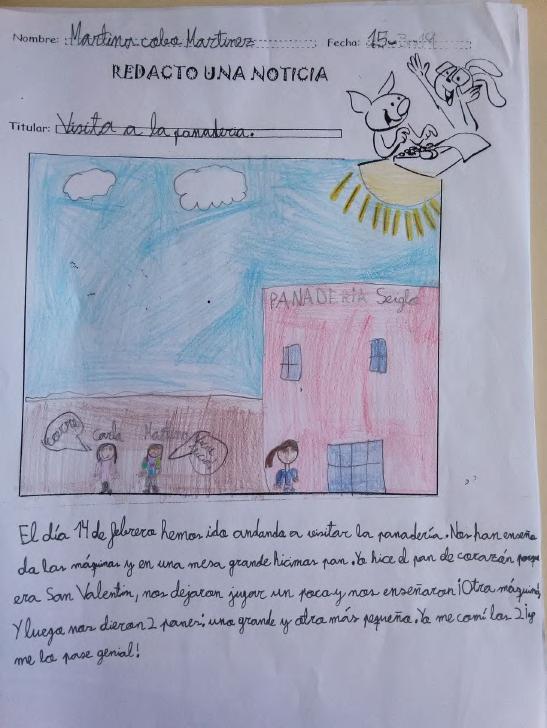 Nombre: Martina cobo Martinez Fecha: 15-3-19
REDACTO UNA NOTICIA
Titular: Visita a la panaderia.
PANADERÍA Seigla
corre
Carla Martina
El día 14 de febrero hemos ido andando a visitar la panadería. Nos han enseña
da las máquinas y en una mesa grande hicimos pan. Yo hice el pan de corazón porque
era San Valentín, nos dejaron jugar un poco y nos enseñaron ¡Otra máquina!
Y luego nos dieron 2 panes: uno grande y otro más pequeño. Yo me comí los 2 ¡yo
me lo pase genial!